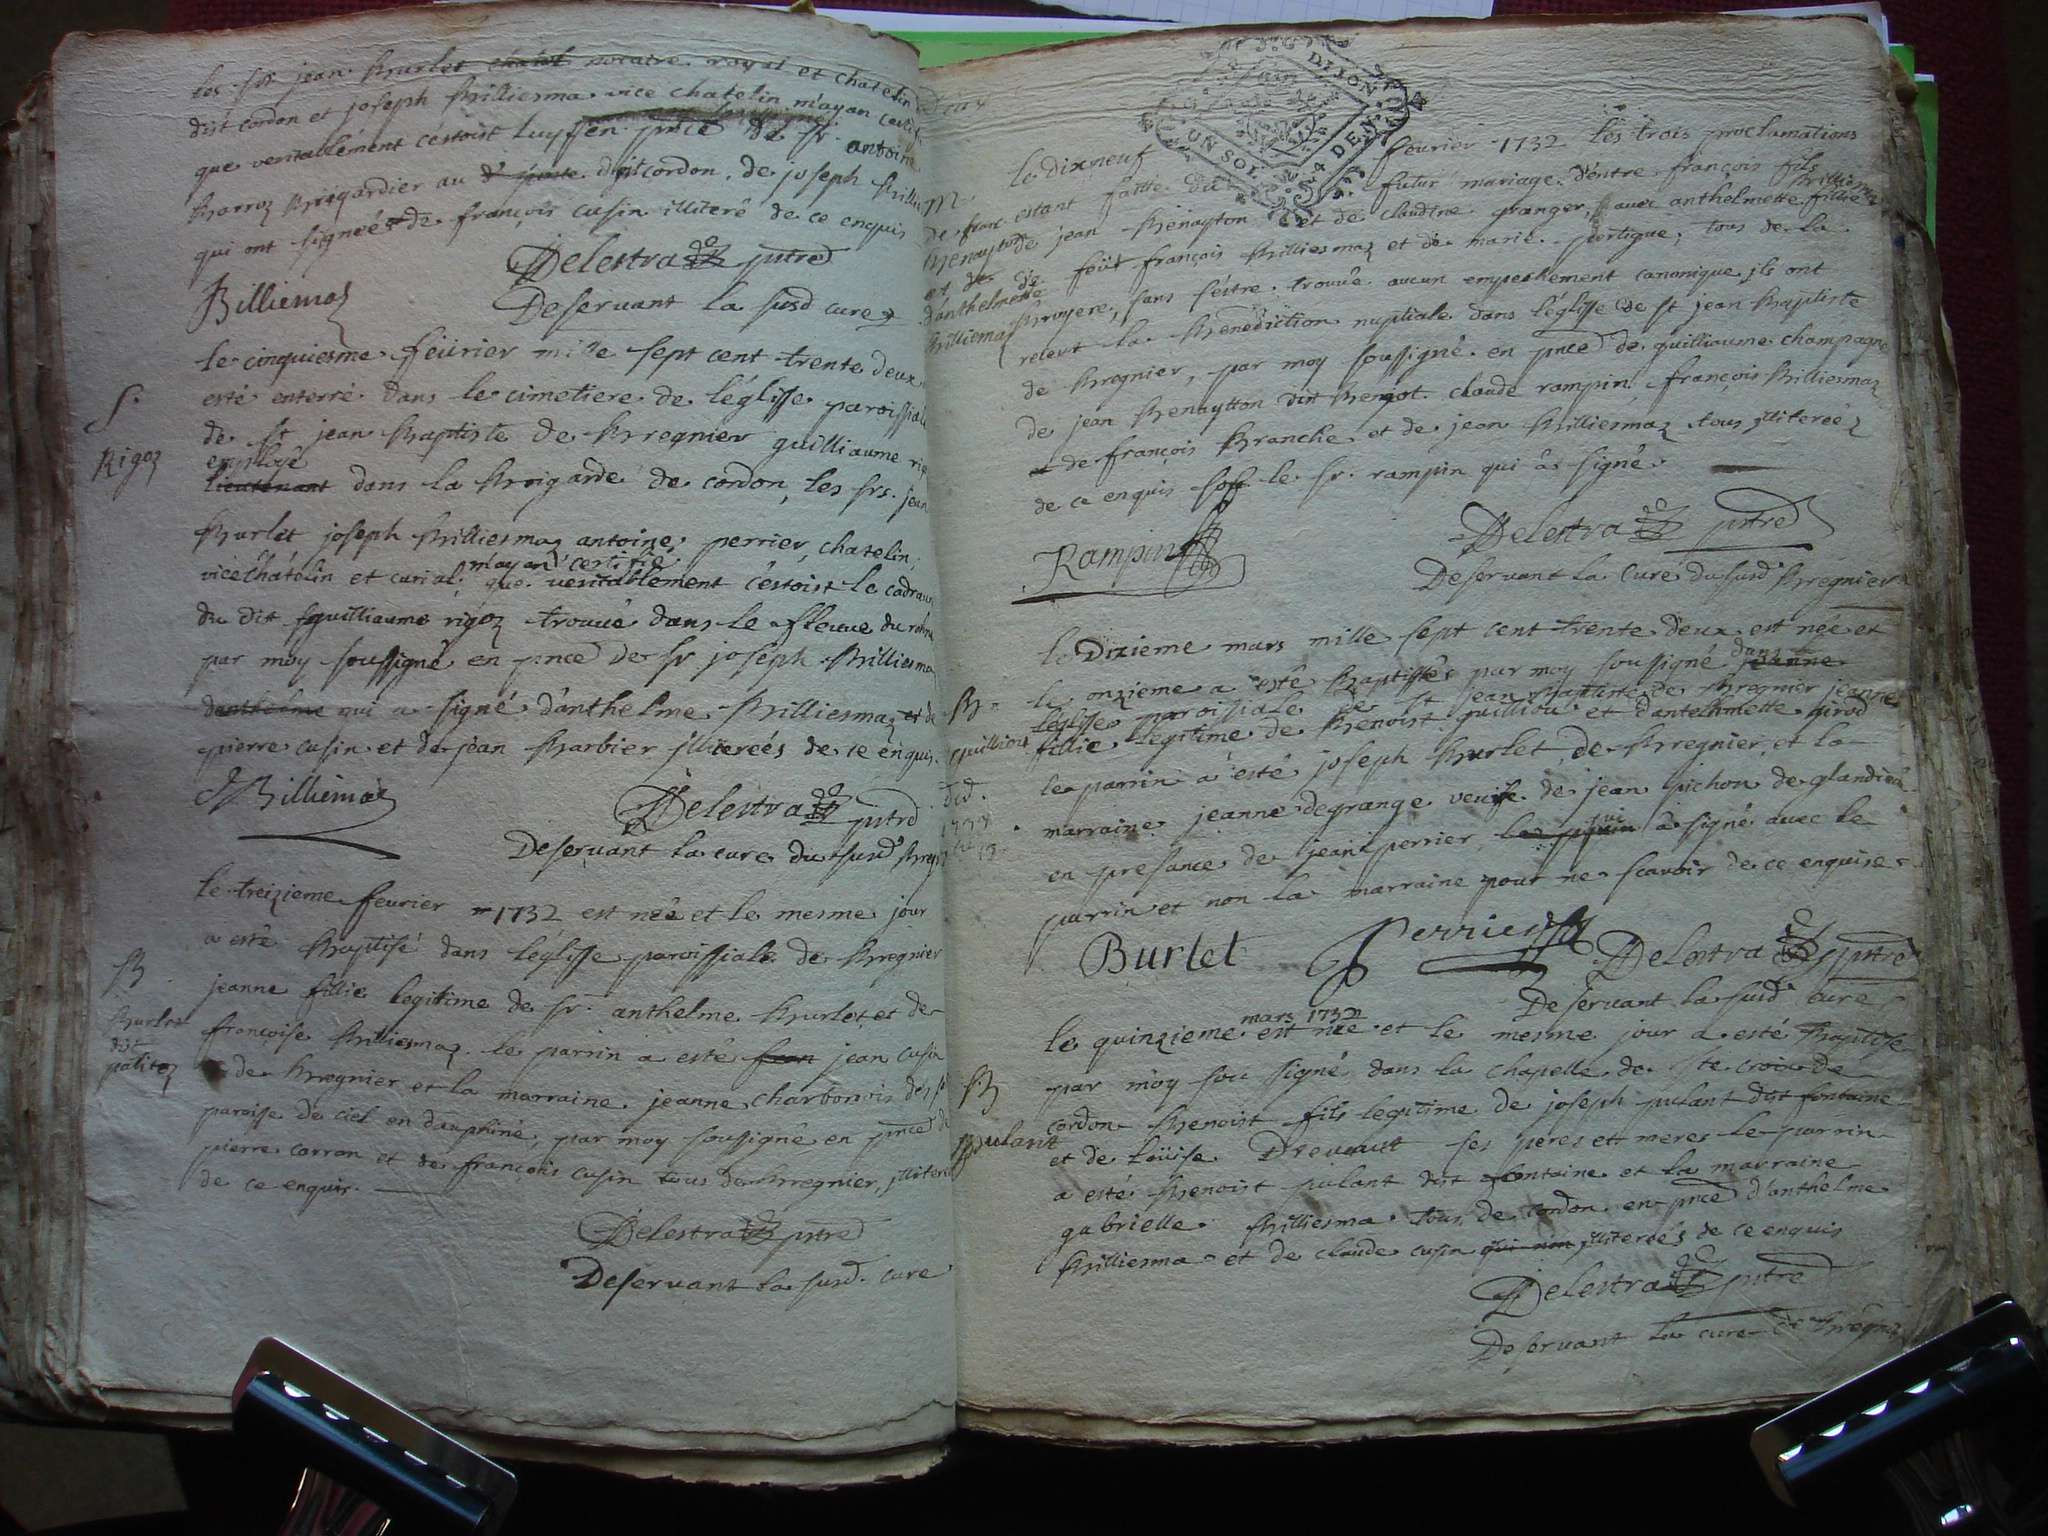 les sr. jean Burlet chatel notaire royal et chatelin
dist cordon et joseph Billiesma vice chatelin m'ayan certif
que veritablement c'estoist luyssen pnce de sr. antoine
Barroz Brigardier au dist cordon, de joseph Billie
qui ont signéé de françois cusin illiteré de ce enquis
Billiemaz
Delestraz ptre
Deservant la susd cure
le cinquiesme feuvrier mille sept cent trente deux
S.
Rigoz
esté enterré dans le cimetiere de léglisse paroissiale
de st jean Baptiste de Bregnier guilliaume rig
employé
lieutenant dans la Brigarde de cordon, les srs. jean
Burlet joseph Billiesmaz antoine perrier, chatelin,
m'ayan certifié
vicechâtelin et curial, que veritablement c'estoist le cadravre
du dit guilliaume rigoz trouvé dans le fleuve du rohne
par moy soussigné en pnce de sr joseph Billiesma
danthelme qui a signé d'anthelme Billiesmaz et de
pierre cusin et de jean Barbier illiterées de ce enquis.
J Billiemaz
Delestraz ptre
Deservant la cure du susd Bregn
le treizieme fevrier 1732 est née et le mesme jour
a esté Baptisé dans léglisse paroissiale de Bregnier
B
Burlet
dist
politoz
jeanne fillie legitime de sr. anthelme Burlet et de
françoise Billiesmaz. le parrin a esté jean cusin
de Bregnier et la marraine jeanne charbonois de
paroisse de ciel en dauphiné, par moy soussigné en pnce de
pierre carron et de françois cusin tous de Bregnier, illiteré
de ce enquis.
Delestraz ptre
Deservant la susd. cure
UN SOL 4 DEN.
DIJON
le dixneuf fevrier 1732 les trois proclamations
M
de franc
Benayton
et de
d'anthelmette
Billiemaz
estant faitte du futur mariage d'entre françois fils
de jean Benayton et de claudine granger, avec anthelmette fillie
Billiesmaz
de feüt françois Billiesmaz et de marie portigue, tous de la
Bruyere, sans s'éstre trouvé aucun empechement canonique ils ont
receut la Benediction nuptiale dans léglisse de st jean Baptiste
de Bregnier, par moy soussigné en pnce de guilliaume champagne
de jean Benaytton dist Bengot claude rampin, françois Billiesmaz
de françois Branche et de jean Billiesmaz tous illiterééz
de ce enquis sof le sr. rampin qui â signé.
Rampin
Delestraz ptre
Deservant la cure dususd Bregnier
le Dixieme mars mille sept cent trente deux est née et
le onzieme a esté Baptissée par moy soussigné dans jeanne
B
guilliou
léglisse paroissiale de st jean Baptiste de Bregnier jeanne
fillie legitime de Benoist guilliou et d'antelhmette girod
le parrin a esté joseph Burlet, de Bregnier, et la
marraine jeanne degrange veuve de jean pichon de glandieu
en presance de jean perrier, qui â signé avec le
parrin et non la marraine pour ne scavoir de ce enquise
Burlet
Perrier
Delestraz ptre
Deservant la susd cure
mars 1732
le quinzieme est née et le mesme jour a esté Baptisé
B
Pulant
par moy sou signé dans la chapelle de ste croix de
cordon Benoist fils legitime de joseph pulant dist fontaine
et de Loüise Drevaust ses peres et meres le parrin
a esté Benoist pulant dist fontaine et la marraine
gabrielle Billiesma tous de cordon en pnce d'anthelme
Billiesma et de claude cusin qui non illiterées de ce enquis
Delestraz ptre
Deservant la cure de Bregnier